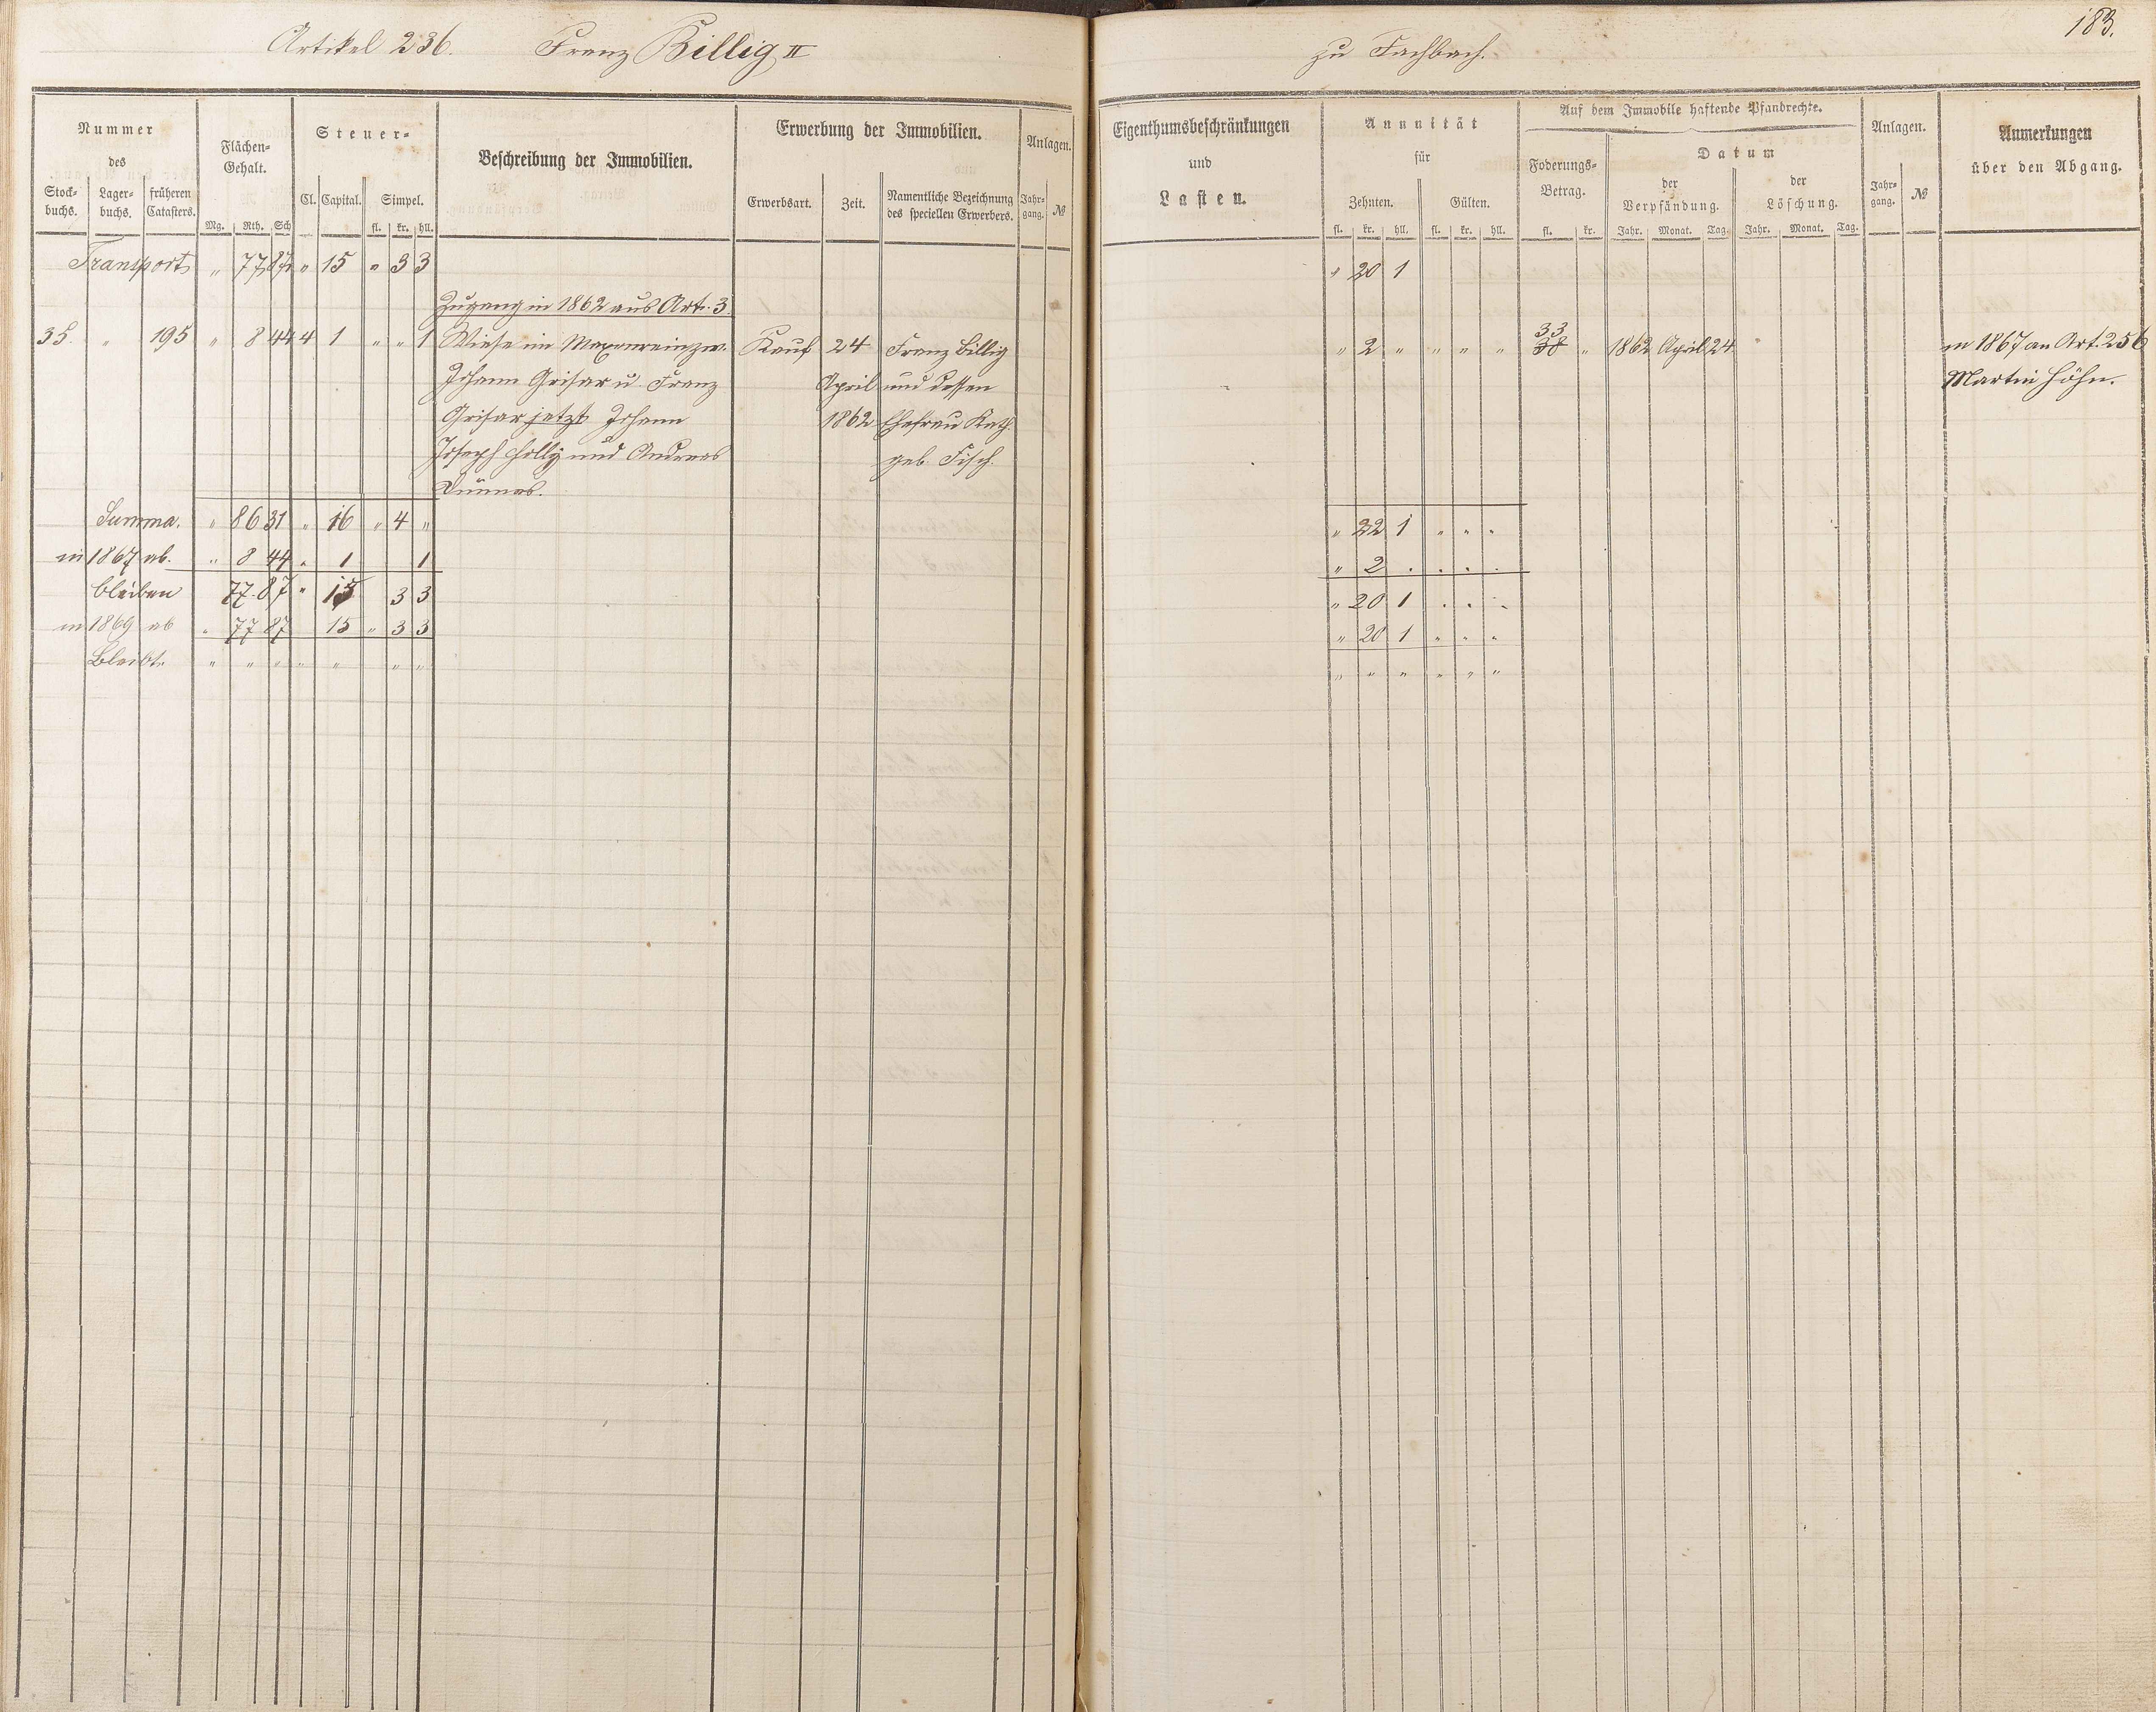 183.
Artikel 236. Franz Billig II zu Fachbach.
Nummer des
Stock-buchs. Lager-buchs. früheren Catasters.
Flächen-Gehalt.
Mg. Rth. Sch
Steuer-
Cl. Capital. Simpel.
fl. kr. hll.
Beschreibung der Immobilien.
Erwerbung der Immobilien.
Erwerbsart. Zeit. Namentliche Bezeichnung des speciellen Erwerbers.
Anlagen.
Jahr-gang. №
Eigenthumsbeschränkungen
und
Lasten.
Annuität
für
Zehnten. Gülten.
fl. kr. hll. fl. kr. hll.
Auf dem Immobile haftende Pfandrechte.
Foderungs-Betrag.
fl. kr.
Datum
der Verpfändung. der Löschung.
Jahr. Monat. Tag. Jahr. Monat. Tag.
Anlagen.
Jahr-gang. №
Anmerkungen
über den Abgang.
Transport " 77 87 " 15 " 3 3 " 20 1
Zugang in 1862 aus Art. 3.
35. " 195 " 8 44 4 1 " " 1 Wiese im Maxenrein zw. Kauf 24 Franz Billig " 2 " " " " 33 38 " 1862 April 24 in 1867 an Art. 256
Johann Grisar u. Franz April und dessen Martin Höhn.
Grisar jetzt Johann 1862 Ehefrau Kath.
Joseph Holly und Andreas geb. Fisch.
Summa. " 86 31 " 16 " 4 " " 22 1 " " "
in 1867 ab. " 8 44 " 1 1 " 2 . . . .
bleiben 77 87 " 15 3 3 " 20 1 . . .
in 1869 ab " 77 87 15 " 3 3 " 20 1 " " "
Bleibt. " " " " " " " " " " " " "